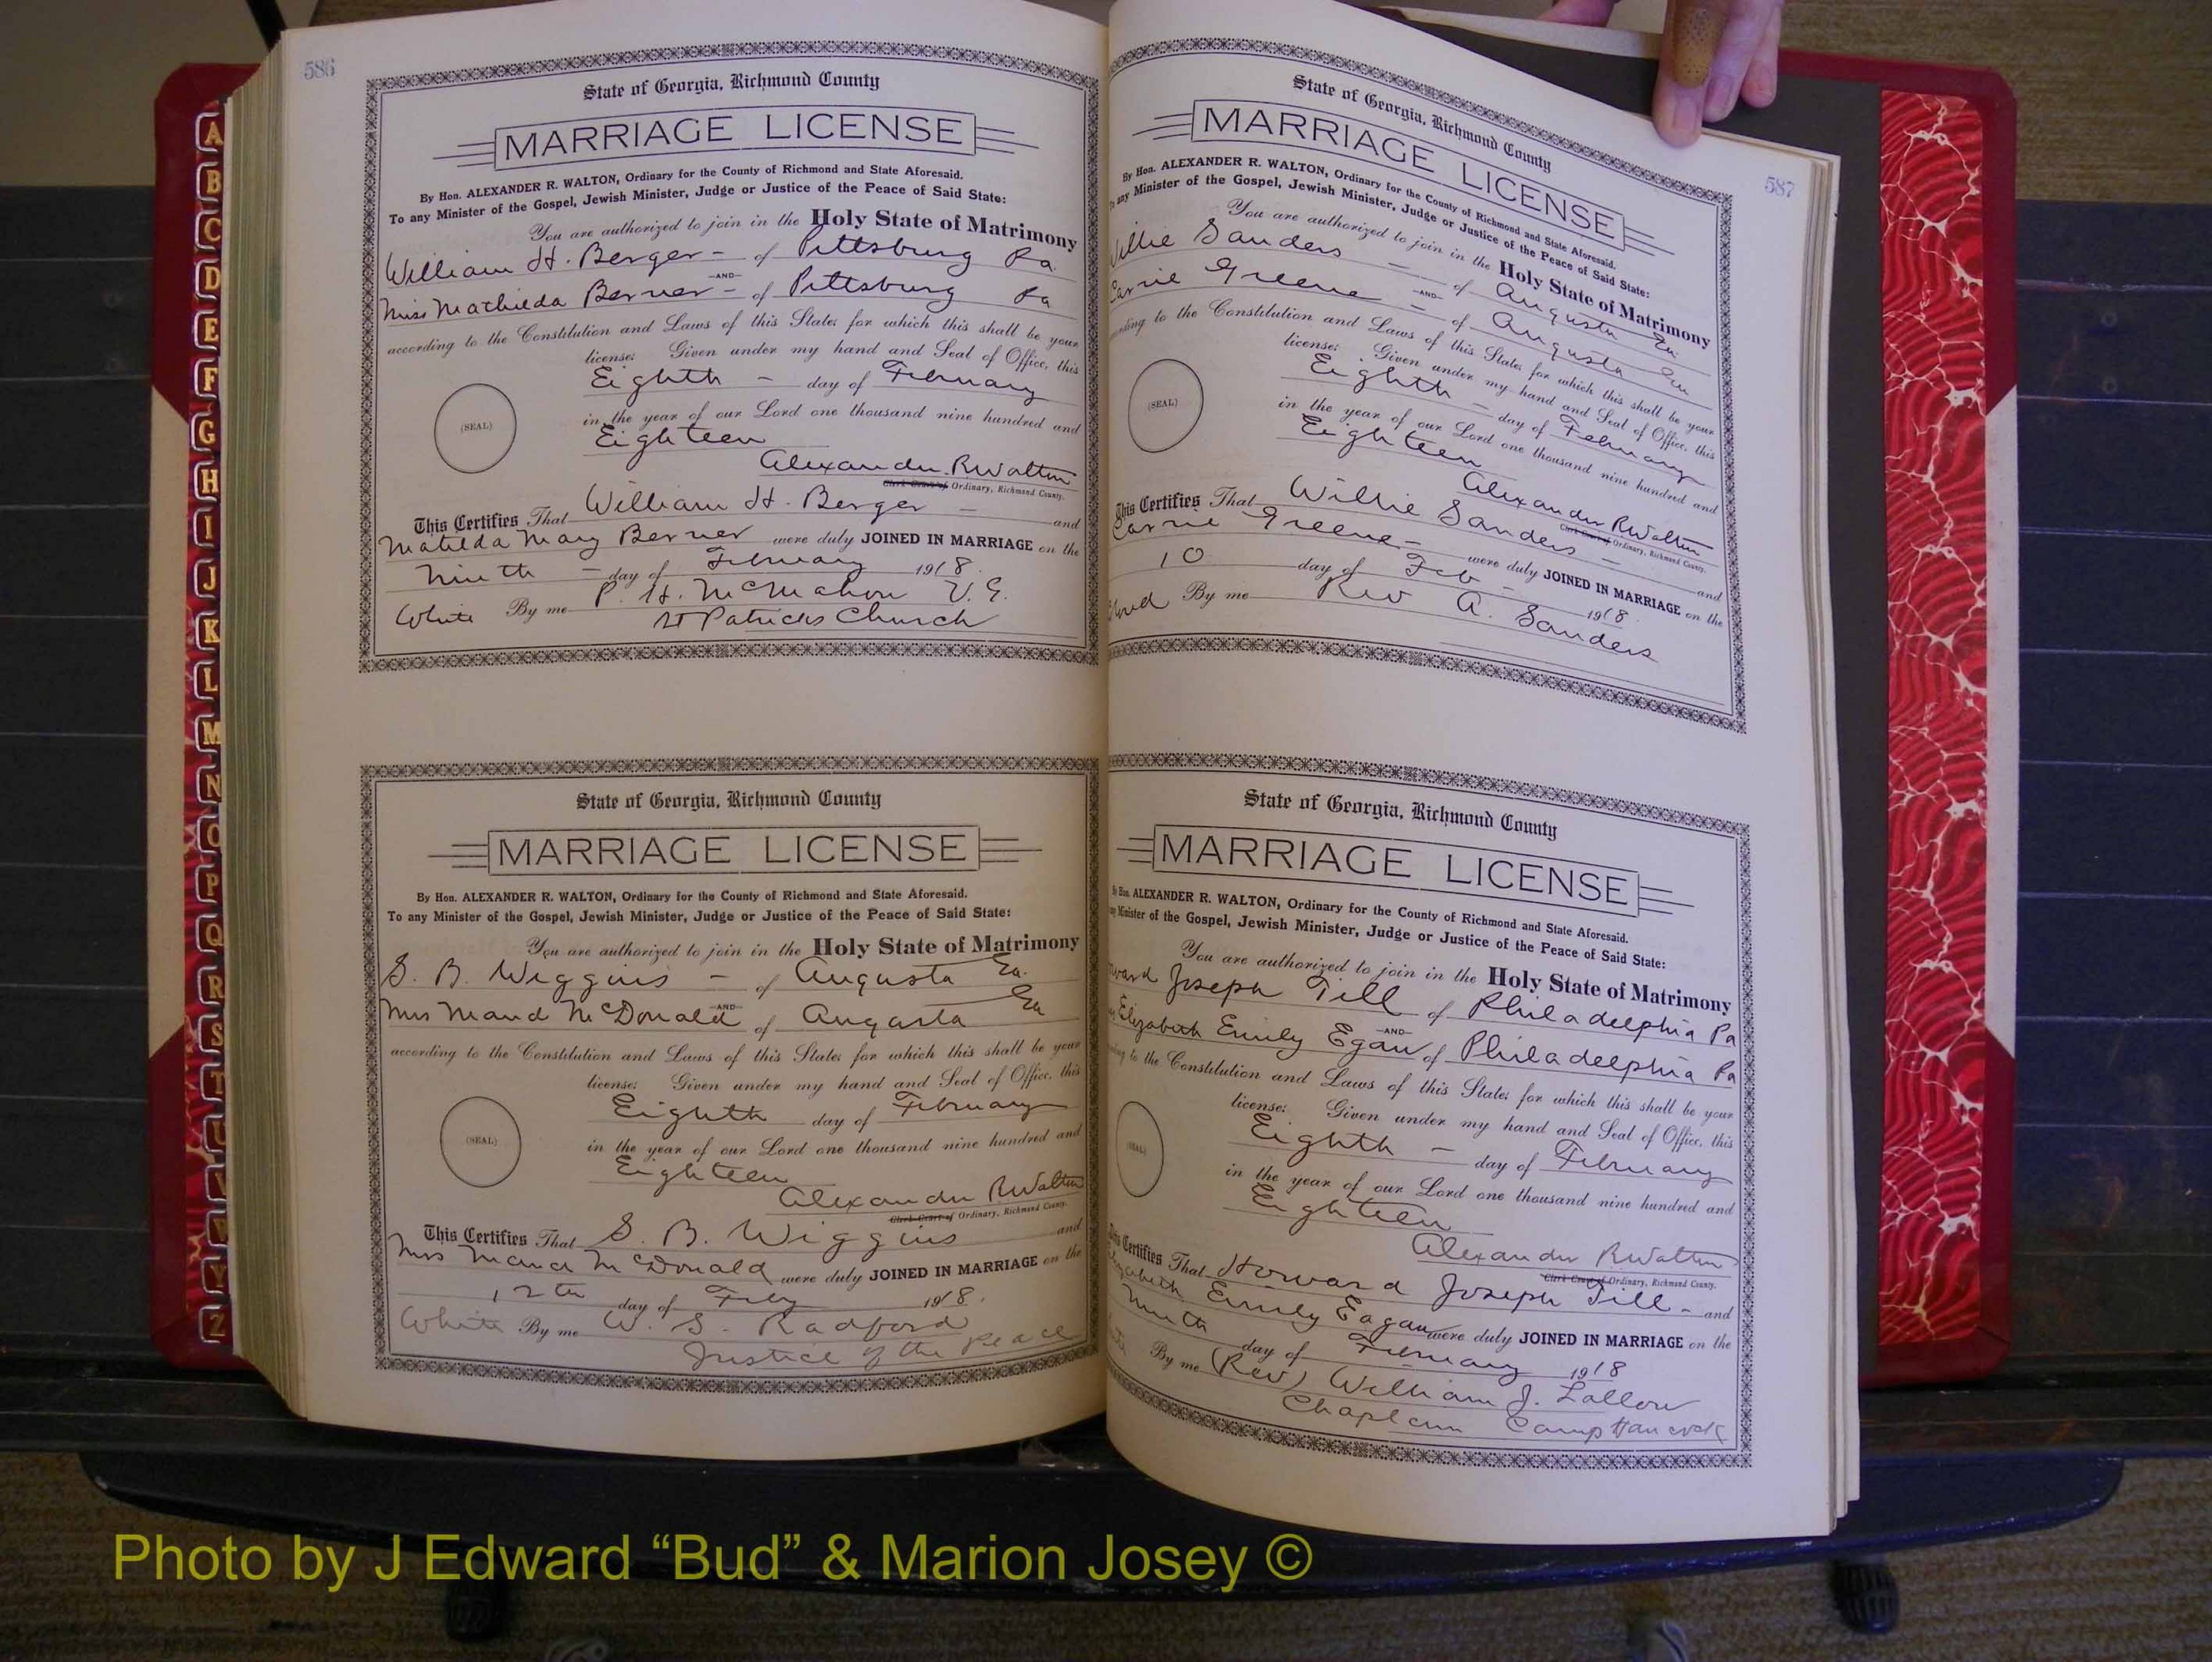 586
State of Georgia, Richmond County
MARRIAGE LICENSE
By Hon. ALEXANDER R. WALTON, Ordinary for the County of Richmond and State Aforesaid.
To any Minister of the Gospel, Jewish Minister, Judge or Justice of the Peace of Said State:
You are authorized to join in the Holy State of Matrimony
William H. Berger - of Pittsburg Pa.
-AND-
Miss Mathilda Berner - of Pittsburg Pa
according to the Constitution and Laws of this State; for which this shall be your
license; Given under my hand and Seal of Office, this
Eighth - day of February
in the year of our Lord one thousand nine hundred and
(SEAL)
Eighteen
Alexander R Walton
Clerk Court of Ordinary, Richmond County.
This Certifies That William H. Berger - and
Matilda Mary Berner were duly JOINED IN MARRIAGE on the
Ninth - day of February 1918.
White By me P. H. McMahon V. G.
St Patricks Church
State of Georgia, Richmond County
MARRIAGE LICENSE
By Hon. ALEXANDER R. WALTON, Ordinary for the County of Richmond and State Aforesaid.
To any Minister of the Gospel, Jewish Minister, Judge or Justice of the Peace of Said State:
You are authorized to join in the Holy State of Matrimony
S. B. Wiggins - of Augusta Ga.
-AND-
Mrs Maud McDonald of Augusta Ga
according to the Constitution and Laws of this State; for which this shall be your
license; Given under my hand and Seal of Office, this
Eighth day of February
in the year of our Lord one thousand nine hundred and
(SEAL)
Eighteen
Alexander R Walton
Clerk Court of Ordinary, Richmond County.
This Certifies That S. B. Wiggins and
Mrs Maud McDonald were duly JOINED IN MARRIAGE on the
12th day of Feby 1918.
White By me W. S. Radford
Justice of the Peace
587
State of Georgia, Richmond County
MARRIAGE LICENSE
By Hon. ALEXANDER R. WALTON, Ordinary for the County of Richmond and State Aforesaid.
any Minister of the Gospel, Jewish Minister, Judge or Justice of the Peace of Said State:
You are authorized to join in the Holy State of Matrimony
Willie Sanders - of Augusta Ga.
-AND-
Carrie Greene - of Augusta Ga
according to the Constitution and Laws of this State; for which this shall be your
license; Given under my hand and Seal of Office, this
Eighth - day of February
in the year of our Lord one thousand nine hundred and
(SEAL)
Eighteen
Alexander R Walton
Clerk Court of Ordinary, Richmond County.
This Certifies That Willie Sanders - and
Carrie Greene - were duly JOINED IN MARRIAGE on the
10 day of Feb 1918.
By me Rev A. Sanders
State of Georgia, Richmond County
MARRIAGE LICENSE
By Hon. ALEXANDER R. WALTON, Ordinary for the County of Richmond and State Aforesaid.
any Minister of the Gospel, Jewish Minister, Judge or Justice of the Peace of Said State:
You are authorized to join in the Holy State of Matrimony
Joseph Till of Philadelphia Pa
-AND-
Elizabeth Emily Egan of Philadelphia Pa
to the Constitution and Laws of this State; for which this shall be your
license; Given under my hand and Seal of Office, this
Eighth - day of February
in the year of our Lord one thousand nine hundred and
(SEAL)
Eighteen
Alexander R Walton
Clerk Court of Ordinary, Richmond County.
This Certifies That Howard Joseph Till - and
Elizabeth Emily Eagan were duly JOINED IN MARRIAGE on the
Ninth day of February 1918
By me (Rev) William J. Lallow
Chaplain Camp Hancock
A
B
C
D
E
F
G
H
I
J
K
L
M
N
O
P
Q
R
S
T
U
V
W
Y
Z
Photo by J Edward “Bud” & Marion Josey ©